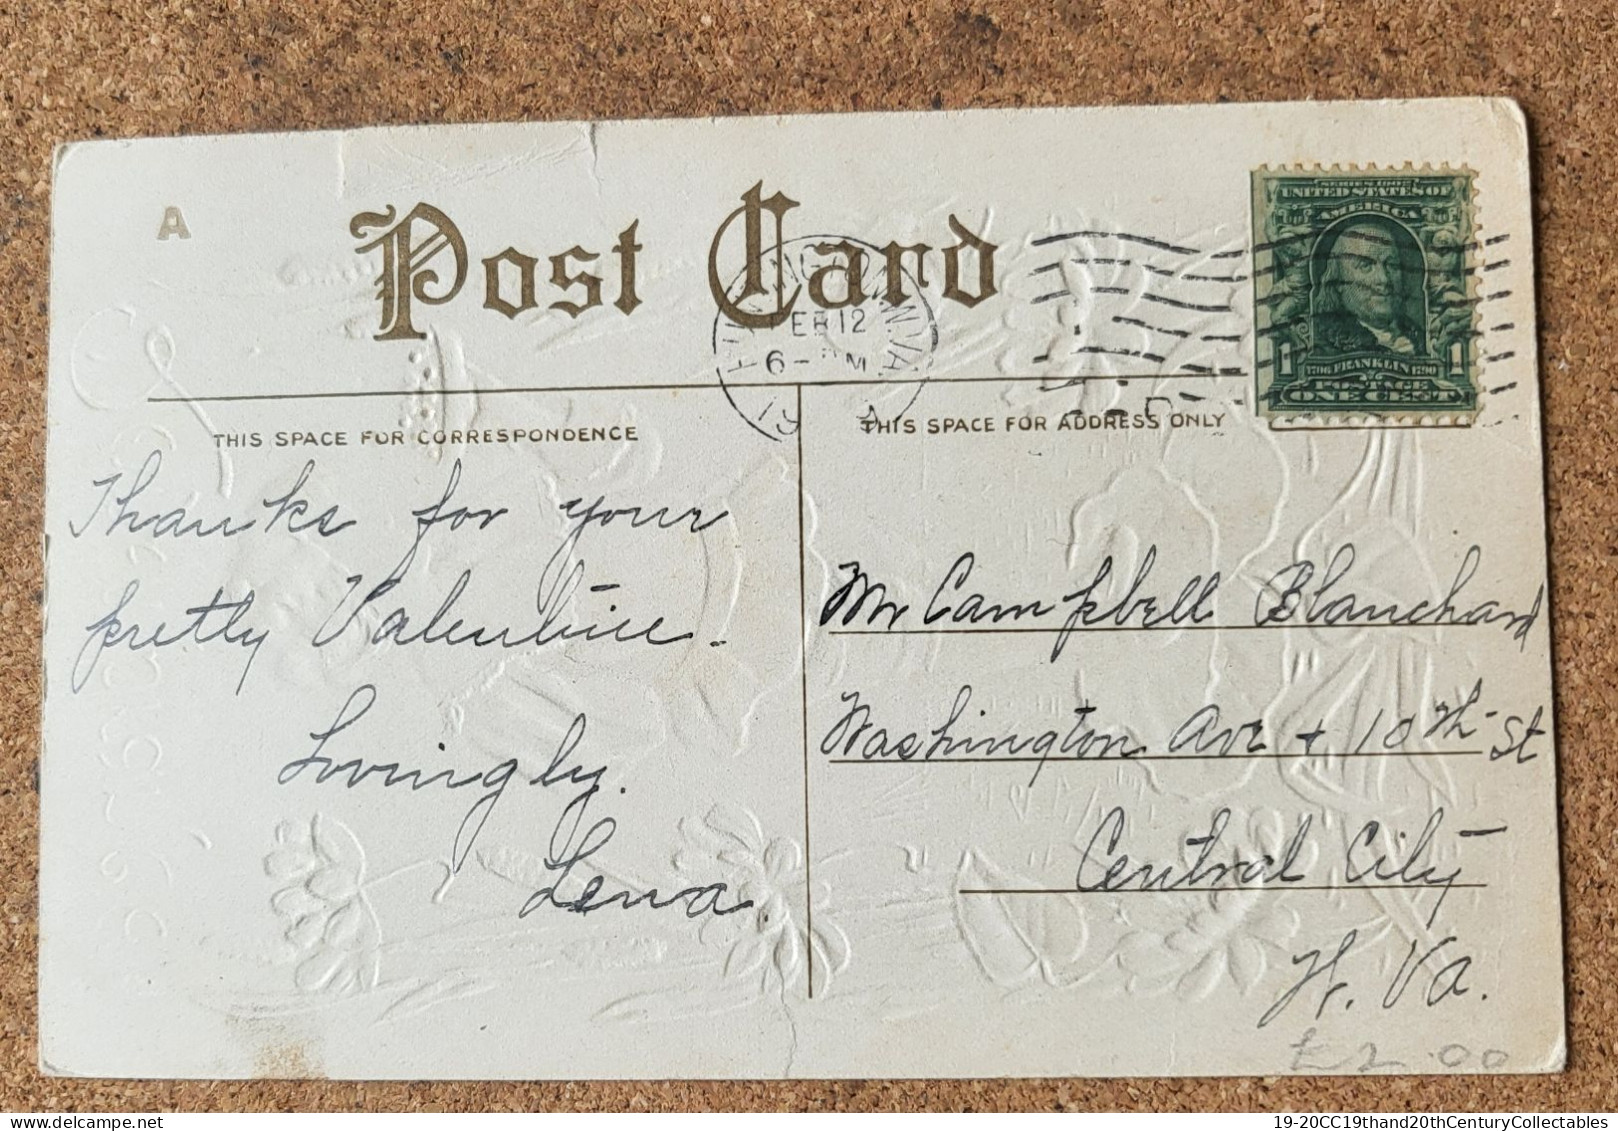 A
Post Card
HUNTINGTON W.VA.
FEB 12
6- PM
19
SERIES 1902
UNITED STATES OF
AMERICA
1706 FRANKLIN 1790
1 1
POSTAGE
ONE CENT
THIS SPACE FOR CORRESPONDENCE
THIS SPACE FOR ADDRESS ONLY
Thanks for your
pretty Valentine.
Lovingly.
Lena
Mr Campbell Blanchard
Washington Ave + 10th St
Central City
W. Va.
£2.00
19-20CC19thand20thCenturyCollectables